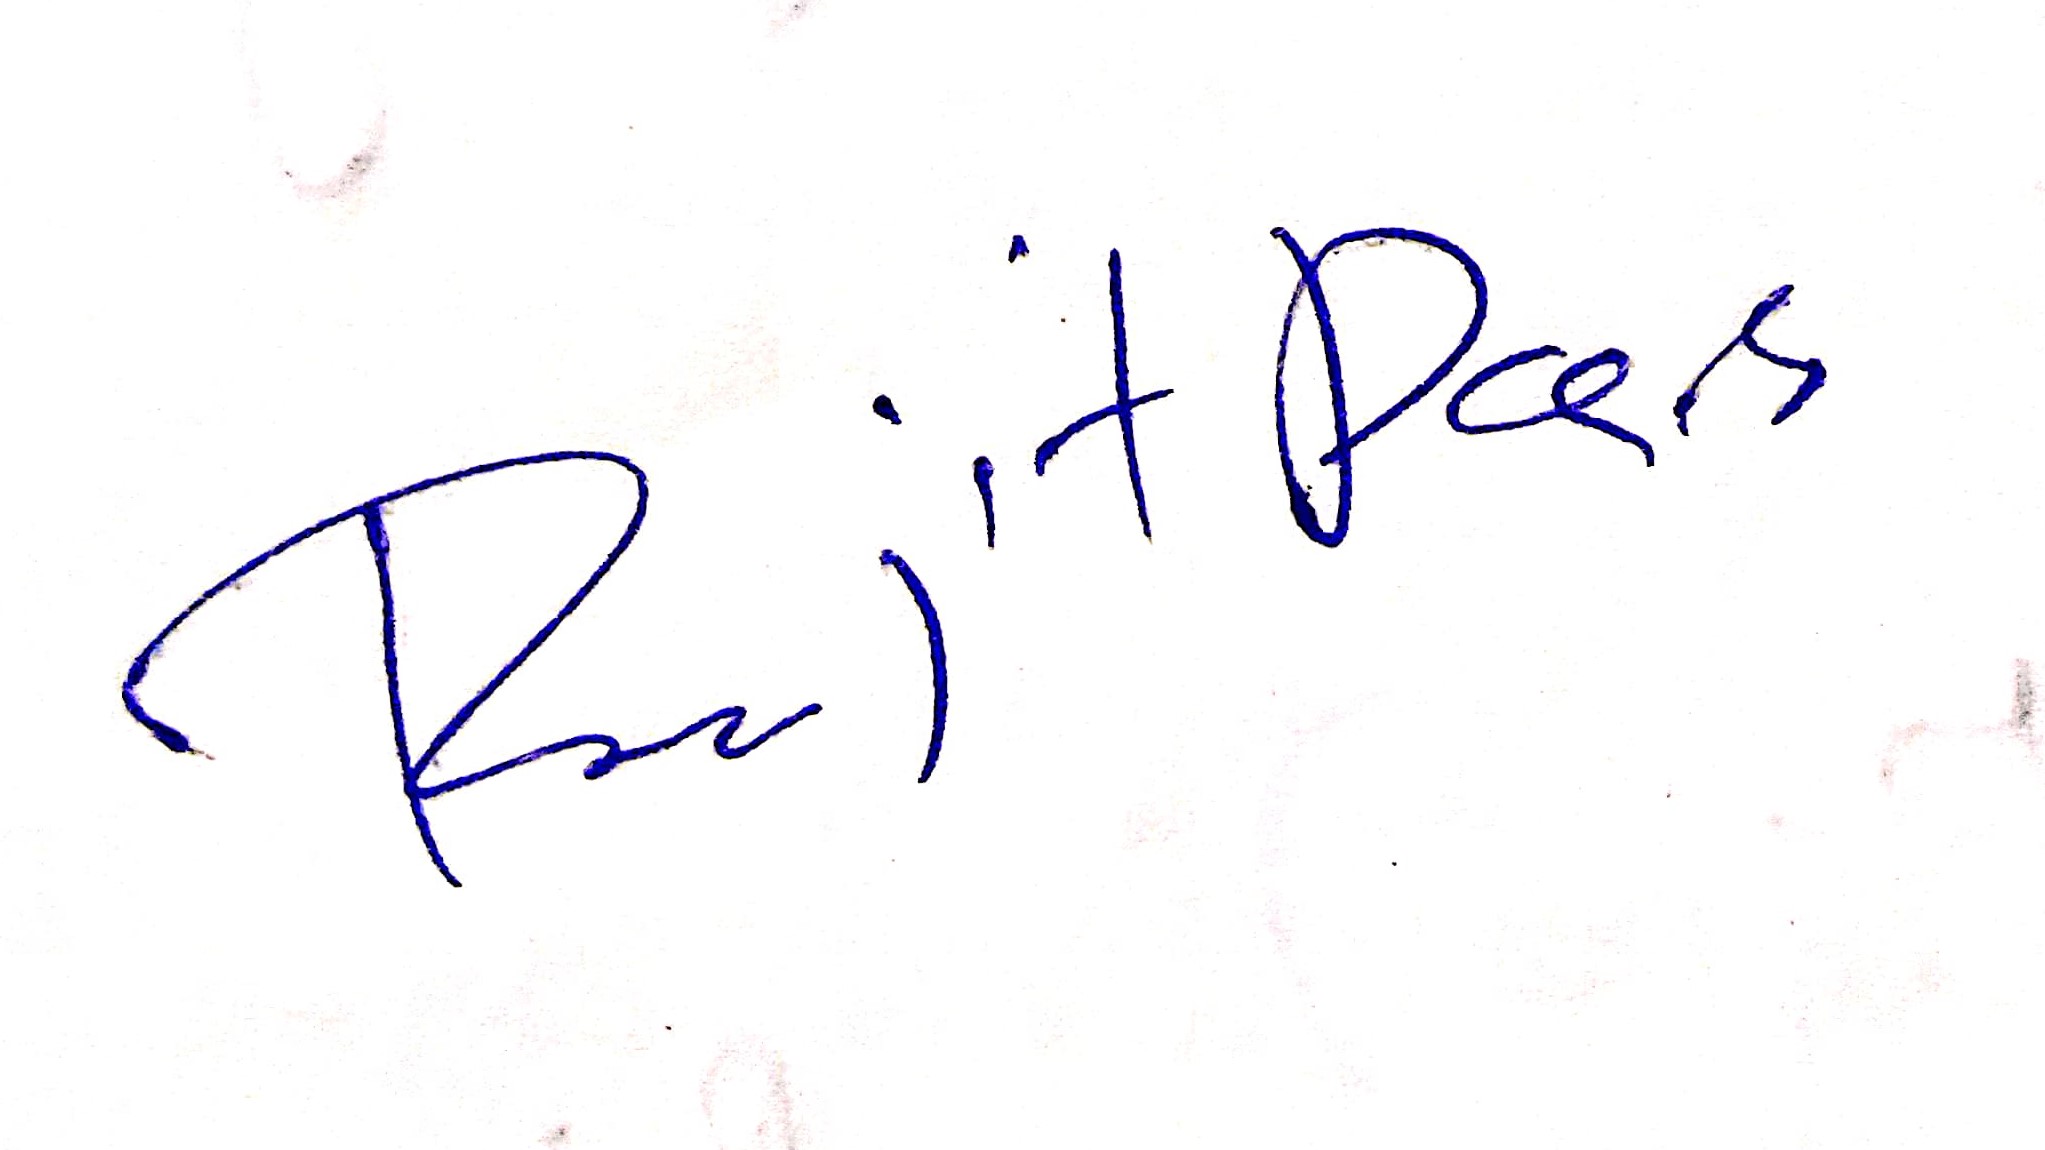 Rajit Das